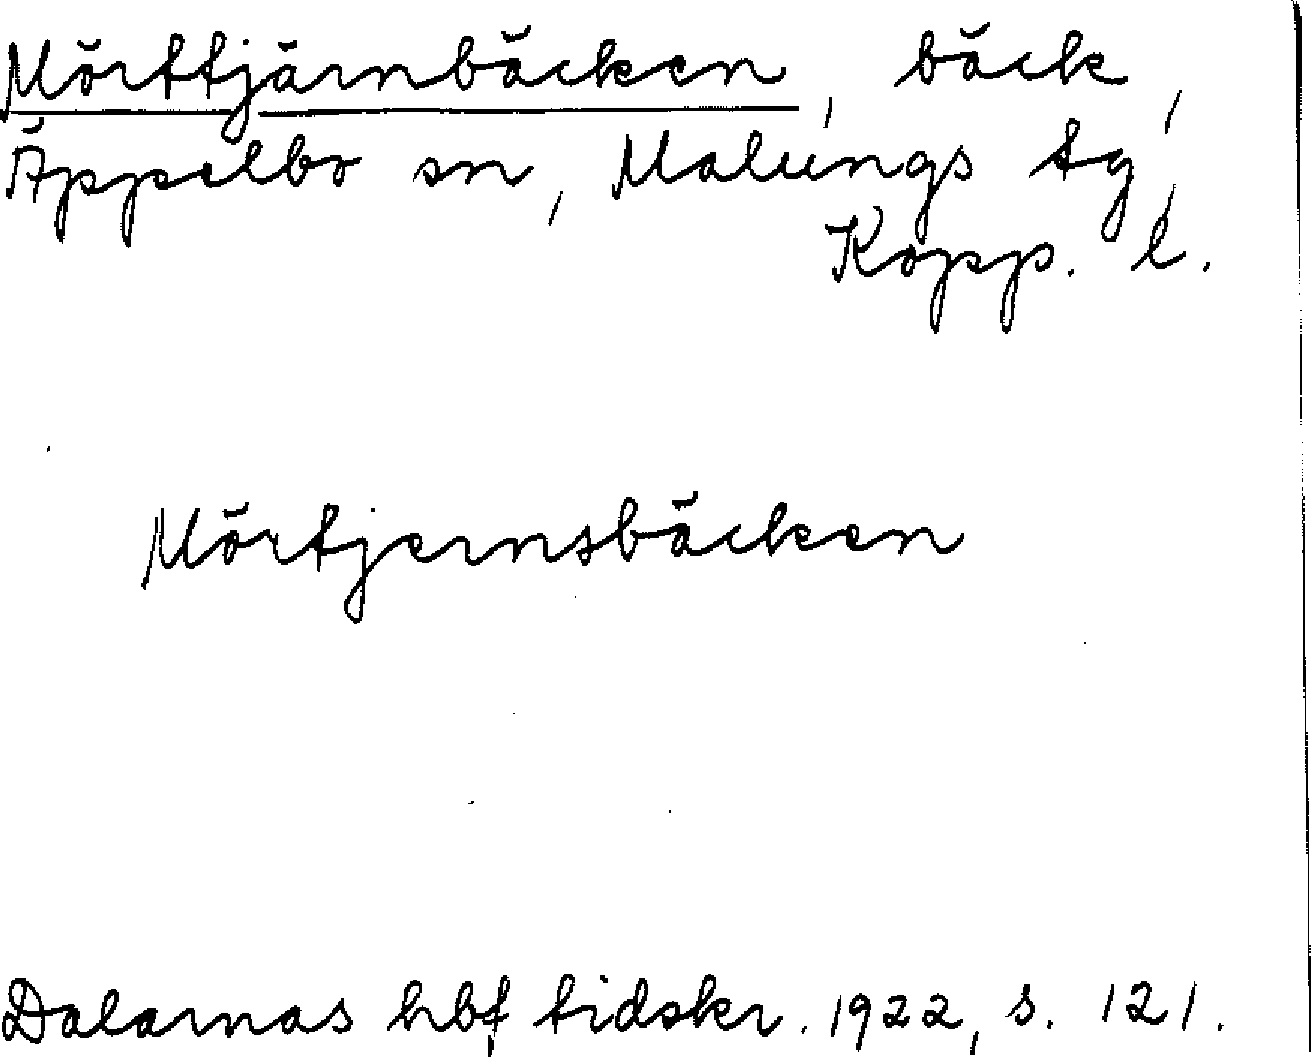 Mörttjärnbäcken, bäck,
Äppelbo sn, Malungs tg,
Kopp. l.
Mörtjernsbäcken
Dalarnas hbf tidskr. 1922, s. 121.